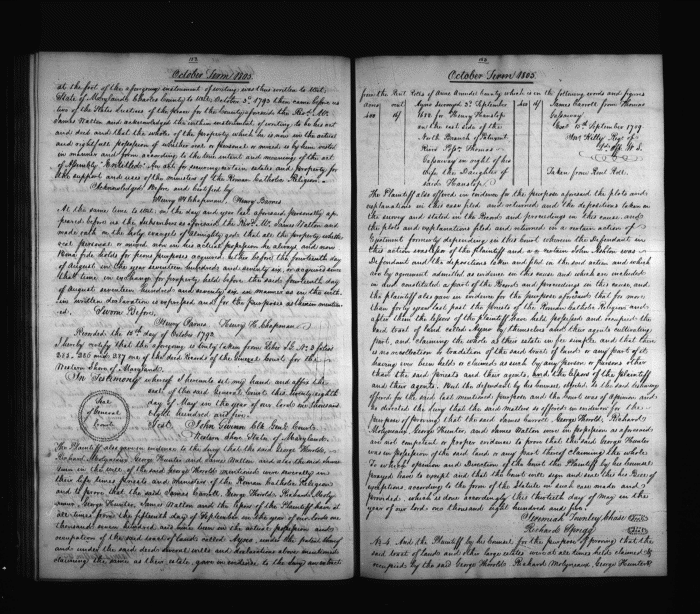 October Term 1805.
at the foot of the aforegoing instrument of writing was thus written to wit.
State of Maryland Charles County to wit October 3d 1793 then came before us
two of the States Justices of the peace for the County aforesaid the Revd Mr.
James Walton and acknowledged the within instrument of writing to be his act
and deed and that the whole of the property which he is now in the actual
and rightfull possession of whether real or personal or mixed is by him
in manner and form according to the true intent and meaning of the act
of Assembly Entitled An act for securing certain estates and property for
the support and uses of the ministers of the Roman Catholic Religion
Acknowledged before and Certified by
Henry H. Chapman Henry Barnes
At the same time to wit on the day and year last aforesaid personally ap
peared before us the subscribers aforesaid the Revd Mr. James Walton and
made oath on the holy evangels of Almighty God that all the property whether
real personal or mixed now in his actual possession he always and now
Bona fide holds for pious purposes acquired either before the fourteenth day
of August in the year seventeen hundred and seventy six, or acquired since
that time in exchange for property held before the said fourteenth day
of August seventeen hundred and seventy six in manner as in the with
in written declaration is expressed and for the purposes as therein mention
ed. Sworn Before
Henry Barnes Henry H. Chapman
Recorded the 12th day of October 1793
I hereby certify that the aforegoing is truly taken from Liber
285, 286 and 287 one of the Land Records of the General Court for the
Western Shore of Maryland.
In Testimony whereof I hereunto set my hand and affix the
seal of the said General Court this twenty eighth
day of May in the year of our lord one thousand
eight hundred and five.
Test John Gwinn Clk Genl Court
Western Shore State of Maryland.
Seal
of General
Court
The Plaintiff also gave in evidence to the Jury that the said George Thorold,
Richard Molyneux, George Hunter and James Walton and also the said James
in the will of the said George Thorold mentioned were severally in
their life times priests and ministers of the Roman Catholic Religion
and to prove that the said James Carroll, George Thorold, Richard Moly
neux, George Hunter, James Walton and the lessor of the Plaintiff have at
all times from the fifteenth day of September in the year of our lord one
thousand seven hundred and nine been in the actual possession and
occupation of the said tract of land called Ayno, under the patent thereof
and under the said deeds several wills and declarations above mentioned
claiming the same as their estate, gave in evidence to the Jury an extract
October Term 1805.
from the Rent Rolls of Anne Arundel County which is in the following words and figures
acres
rent
Ayno surveyed 3d September
1682 for Henry Hanslap
on the east side of the
North Branch of Patuxent,
Poss
Thomas
Gassaway in right of his
wife the Daughter of
said Hanslap.
James Carroll from Thomas
Gassaway
15th September 1709
Taken from Rent Roll.
The Plaintiff also offered in evidence for the purpose aforesaid the plots and
explanations in this case filed and returned and the depositions taken on
the survey and stated in the Record and proceedings in this cause, and
the plots and explanations filed and returned in a certain action of
Ejectment formerly depending in this Court wherein the Defendant in
this action was lessor of the plaintiff and a certain John Ashton was
Defendant and the depositions taken and filed in the said action and which
are by agreement admitted as evidence in this cause and which are included
in and constituted a part of the Record and proceedings in this cause, and
the plaintiff also gave in evidence for the purpose aforesaid that for more
than forty years last past the Priests of the Roman Catholic Religion and
after them the lessor of the plaintiff have held possessed and occupied the
said tract of land called Ayno by themselves and their agents cultivating
part, and claiming the whole as their estate in fee simple and that there
is no recollection or tradition of the said tract of land or any part of it
having ever been held or claimed as such by any person or persons other
than the said priests and their agents and the lessor of the plaintiff
and their agents. But the defendant by his counsel objected to the said testimony
offered for the said last mentioned purpose and the Court was of opinion and
so directed the Jury that the said matters so offered in evidence for the
purpose of proving that the said James Carroll, George Thorold, Richard
Molyneux, George Hunter, and James Walton were in possession as aforesaid
are not competent or proper evidence to prove that the said George Hunter
was in possession of the said land or any part thereof claiming the whole.
To which opinion and Direction of the Court the Plaintiff by his counsel
prayed leave to except and that the Court will sign and seal this his Bill of
Exceptions according to the form of the Statute in such case made and
provided. which is done accordingly this thirtieth day of May in the
year of our lord one thousand eight hundred and five.
Jeremiah Townley Chase
Richard Sprigg
No 4 And the Plaintiff by his counsel for the purpose of proving that the
said tract of land and other large estates were at all times held claimed &
occupied by the said George Thorold Richard Molyneux, George Hunter &